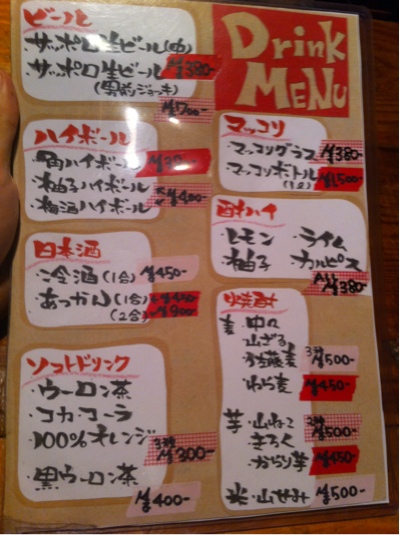 ビール
・サッポロ生ビール(中)
¥380-
・サッポロ生ビール
(男前ジョッキ)
¥700-
Drink
MENU
ハイボール
・角ハイボール
・柚子ハイボール
・梅酒ハイボール
¥400-
マッコリ
・マッコリグラス ¥380-
・マッコリボトル ¥1,500-
(1ℓ)
日本酒
・冷酒(1合) ¥450-
・あつかん(1合) ¥450-
(2合) ¥900-
酎ハイ
・レモン ・ライム
・柚子 ・カルピス
All ¥380-
焼酎
麦・中々
・山ざる
・佐藤麦 ¥500-
・わら麦 ¥450-
芋・山ねこ
・きろく ¥500-
・からり芋 ¥450-
米・山せみ ¥500-
ソフトドリンク
・ウーロン茶
・コカ・コーラ
・100%オレンジ
¥300-
・黒ウーロン茶
¥400-